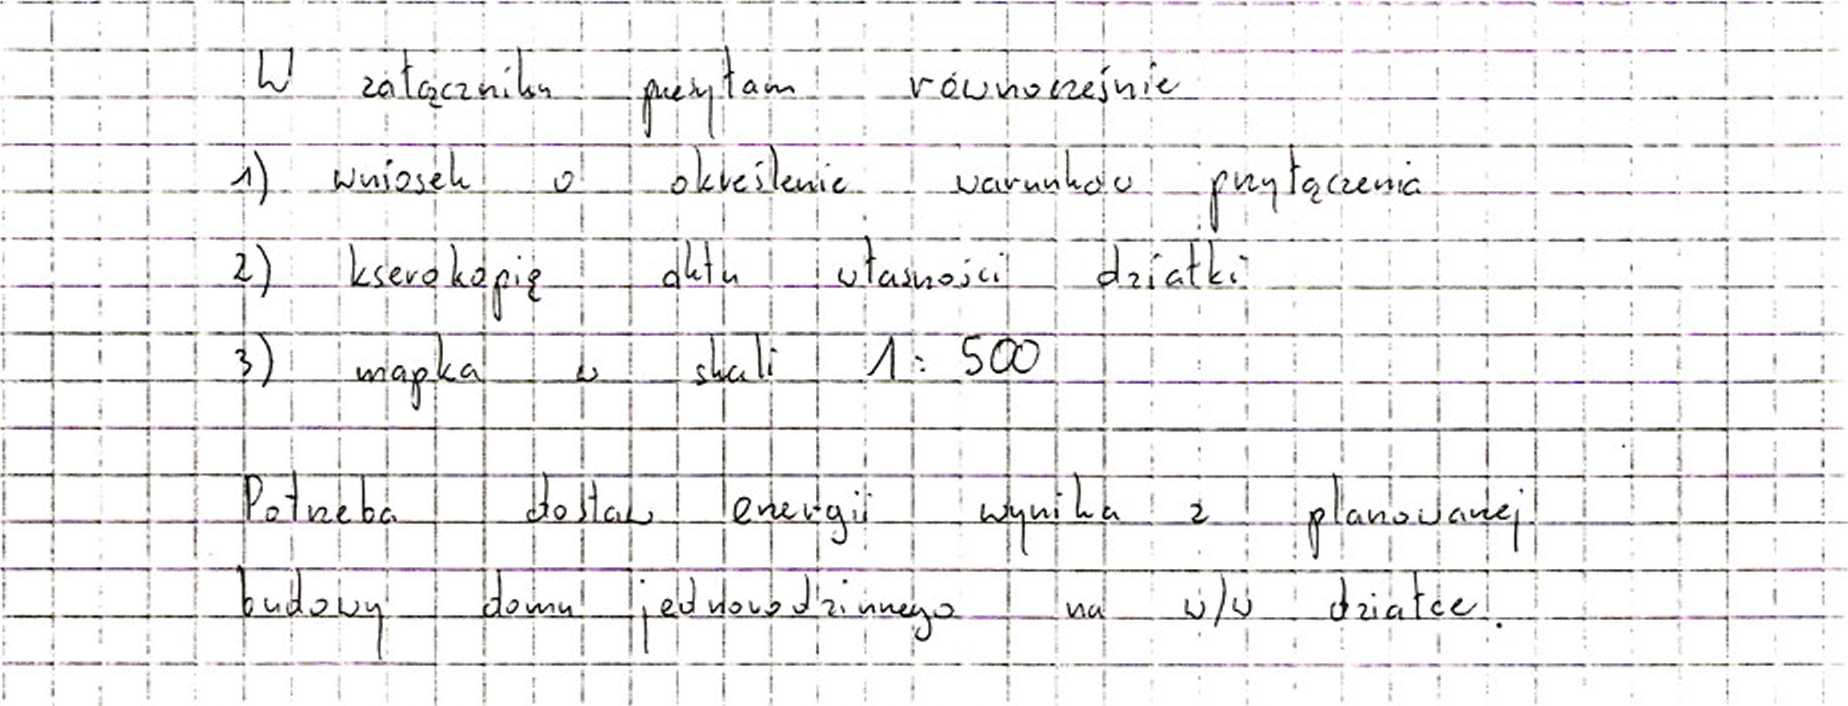 W załączniku przesyłam równocześnie
1) wniosek o określenie warunków przyłączenia
2) kserokopię aktu własności działki
3) mapka w skali 1:500
Potrzeba dostaw energii wynika z planowanej
budowy domu jednorodzinnego na w/w działce.